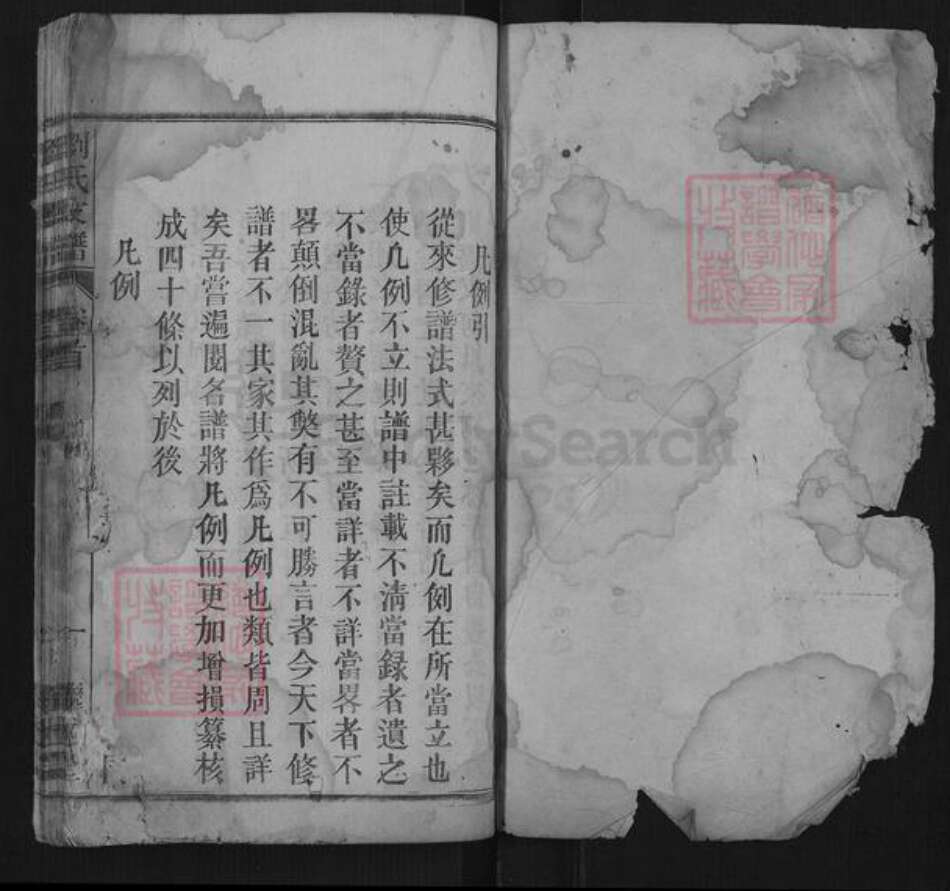 凡例引
從來修譜法式甚夥矣而凡例在所當立也
使凡例不立則譜中註載不清當錄者遺之
不當錄者贅之甚至當詳者不詳當畧者不
畧顛倒混亂其獘有不可勝言者今天下修
譜者不一其家其作爲凡例也類皆周且詳
矣吾嘗遍閱各譜將凡例而更加增損纂核
成四十條以列於後
凡例
劉氏支譜
卷首
一
FamilySearch